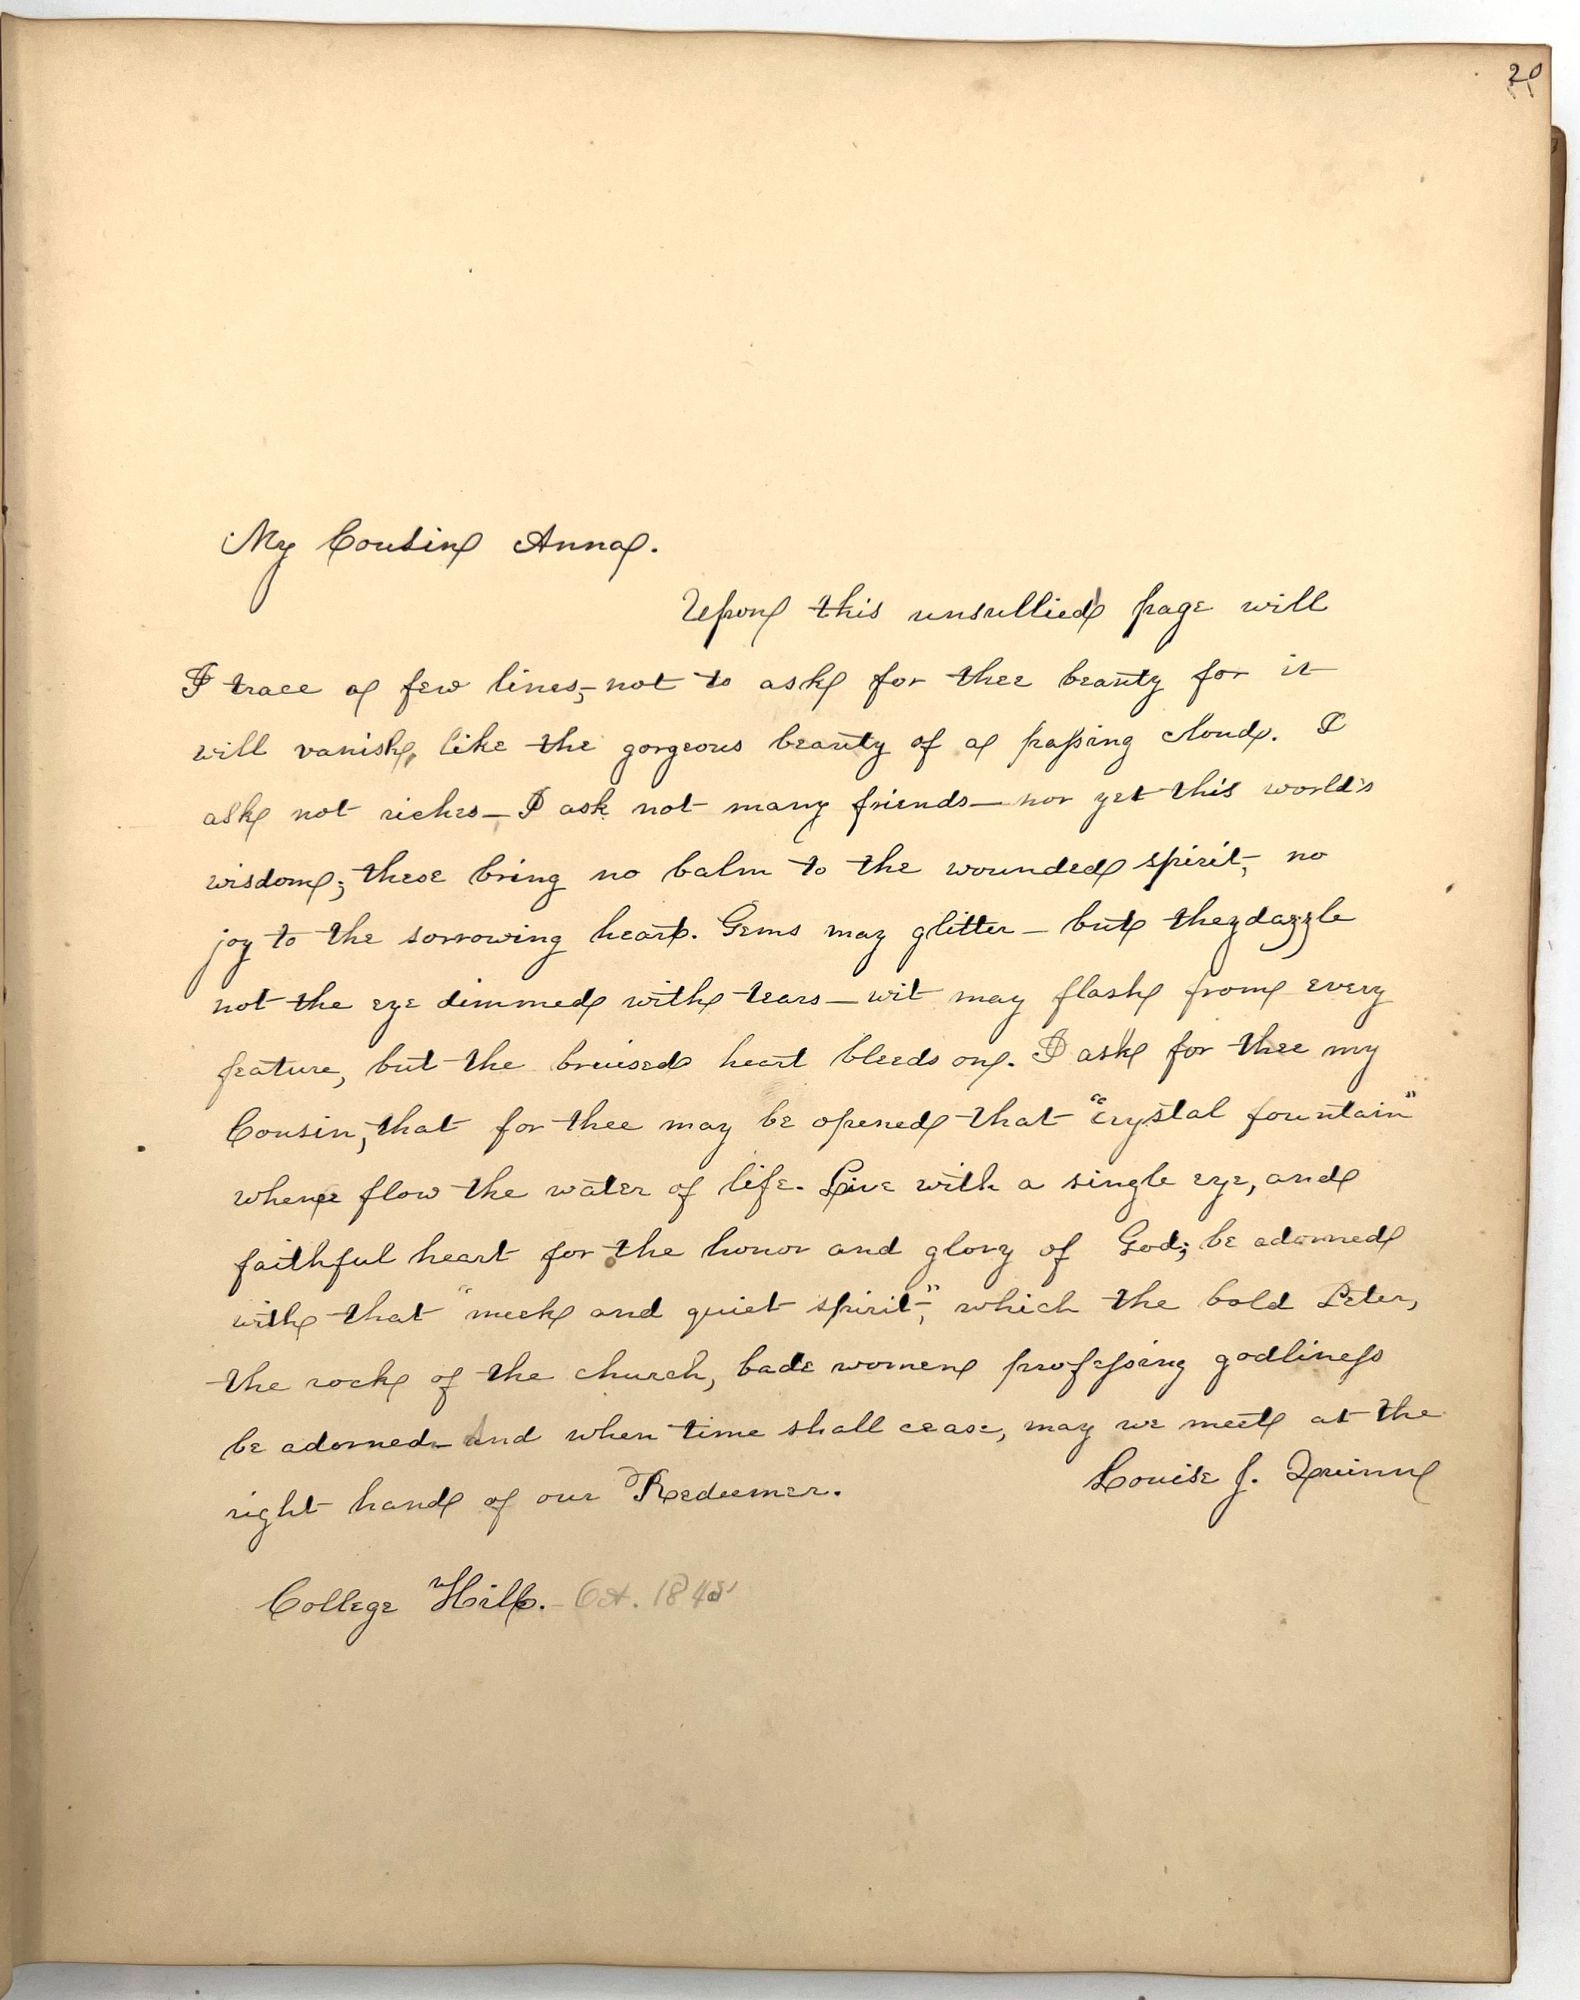 20
My Cousin Anna.
Upon this unsullied page will
I trace a few lines,- not to ask for thee beauty for it
will vanish, like the gorgeous beauty of a passing cloud. I
ask not riches — I ask not many friends — nor yet this world's
wisdom; these bring no balm to the wounded spirit, no
joy to the sorrowing heart. Gems may glitter — but they dazzle
not the eye dimmed with tears — wit may flash from every
feature, but the bruised heart bleeds on. I ask for thee my
Cousin, that for thee may be opened that "crystal fountain"
whence flow the water of life. Live with a single eye, and
faithful heart for the honor and glory of God; be adorned
with that "meek and quiet spirit," which the bold Peter,
the rock of the church, bade women professing godliness
be adorned - And when time shall cease, may we meet at the
right hand of our Redeemer.
Louise J. Quinn
College Hill. - Oct.